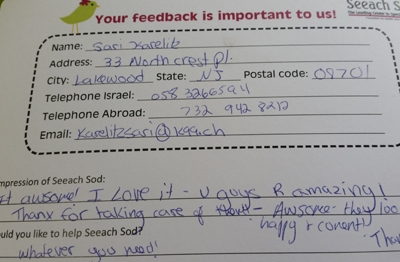 Your feedback is important to us!
Seeach S
Name: Sari Karelitz
Address: 33 North crest pl.
City: Lakewood State: NJ Postal code: 08701
Telephone Israel: 058 3266594
Telephone Abroad: 732 942 8212
Email:
mpression of Seeach Sod:
awsome! I Love it - U guys R amazing!
Thanx for taking care of - Awsome - they loo
happy & content! Tha
uld you like to help Seeach Sod?
whatever you need!